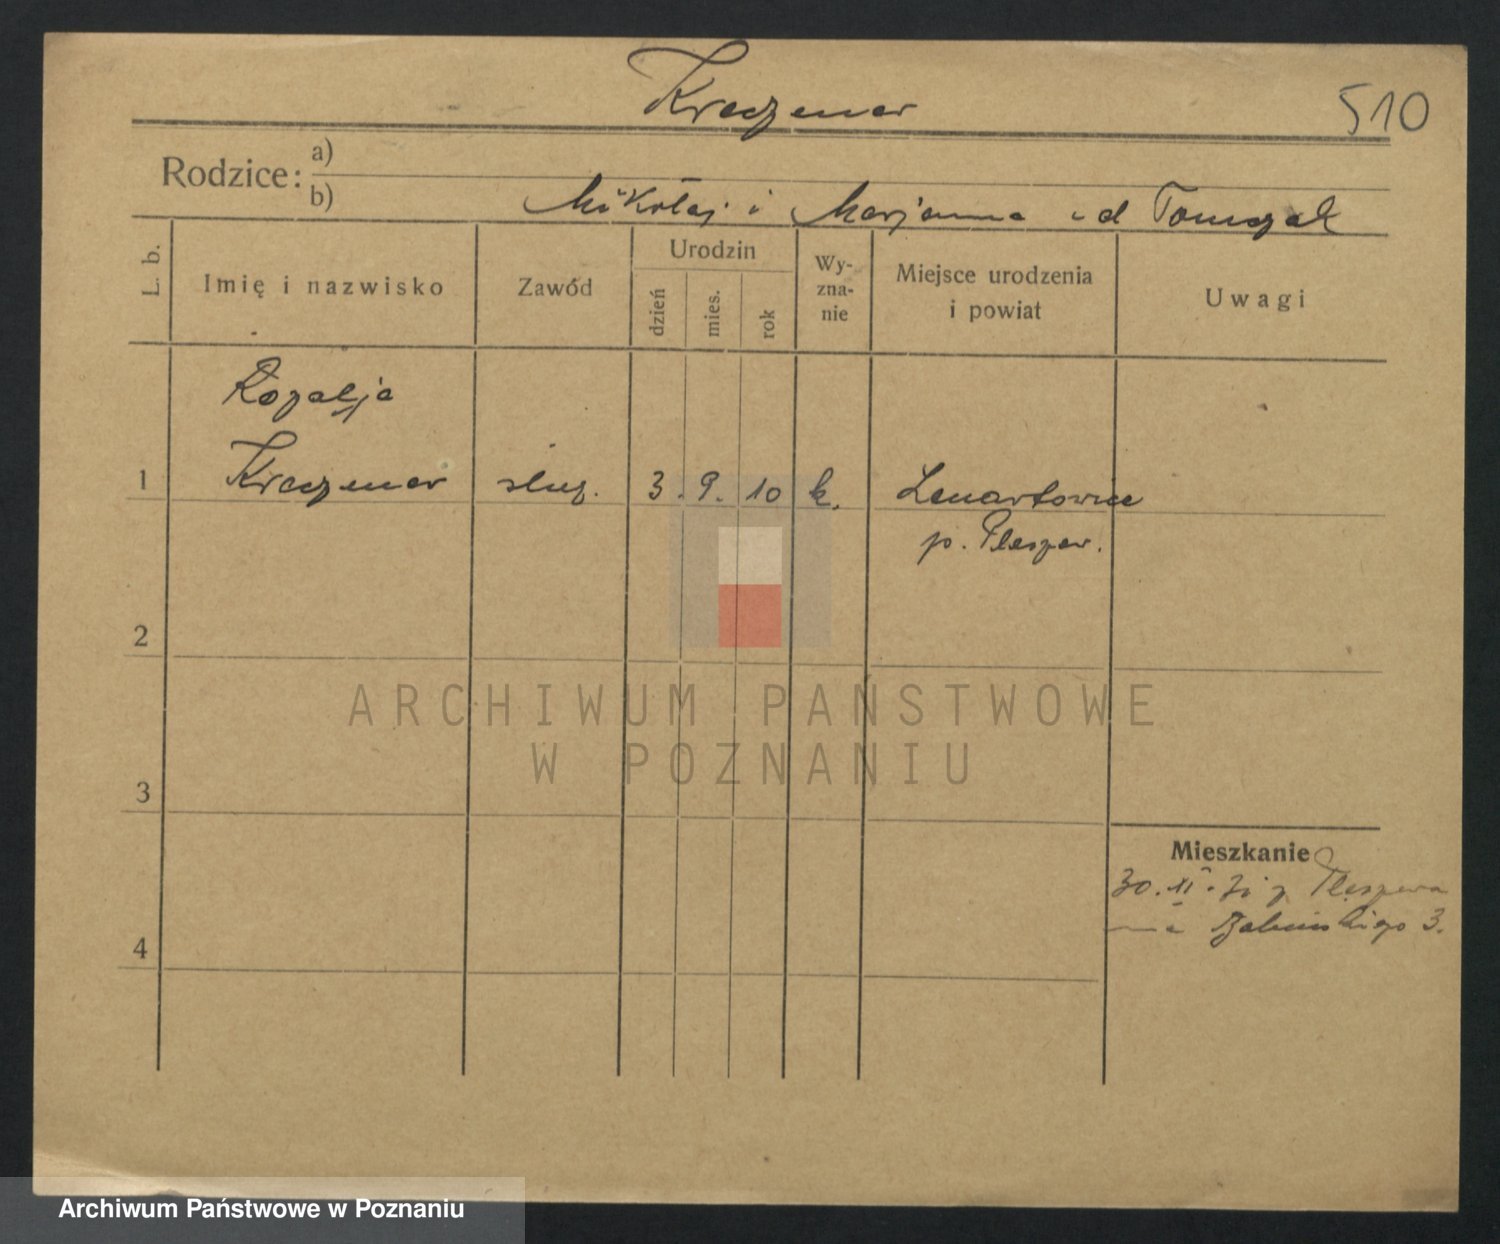 Kraczmar
510
Rodzice: a)
b) Mikołaj i Marjanna z d Tomczak
L. b.
Imię i nazwisko
Zawód
Urodzin
dzień
mies.
rok
Wy-
zna-
nie
Miejsce urodzenia
i powiat
Uwagi
Rozalja
1 służ. 3. 9. 10 k. Lenartowice
p. Pleszew.
2
3
4
Mieszkanie
30. XI. z Pleszewa
na 3.
ARCHIWUM PAŃSTWOWE
W POZNANIU
Archiwum Państwowe w Poznaniu